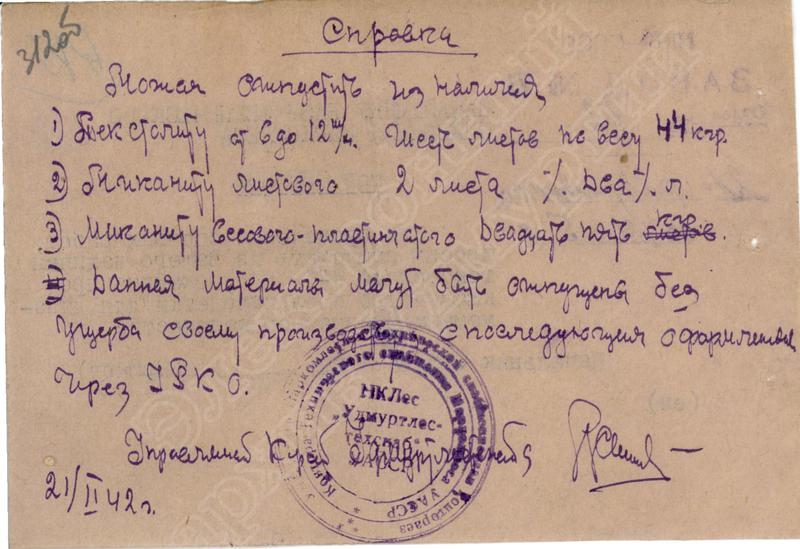 3120б
Справка
Можем отпустить из наличия
1) Текстолиту от 6 до 12 м/м. Шесть листов по весу 44 кгр.
2) Миканиту листового 2 листа /два/. л.
3) Миканиту весового-пластинчатого двадцать пять кгр.
Данная материалы могут быть отпущены без
ущерба своему производству с последующим оформлением
через
Управляющий
21/II 42 г.
НКЛес
Удмуртлес-
техснаб
УАССР
Контора технического снабжения